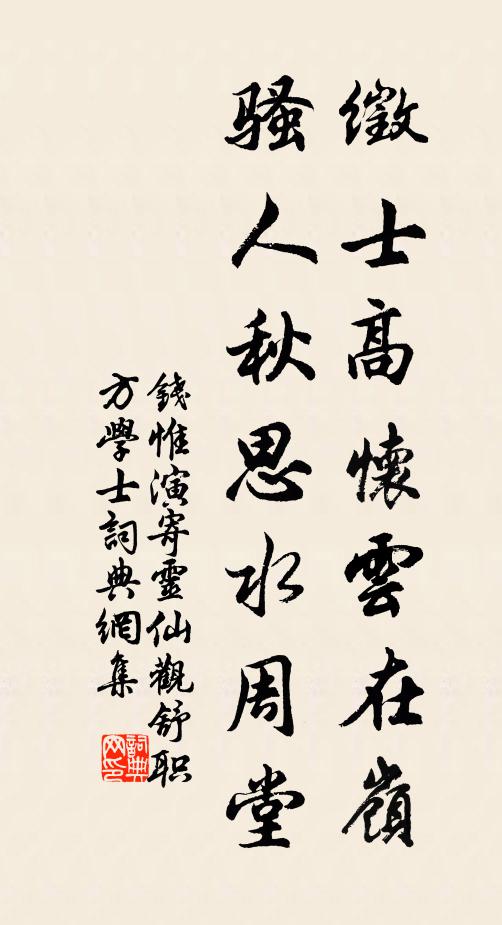 徵士高懷雲在嶺
騷人秋思水周堂
錢惟演寄靈仙觀舒职
方學士詞典網集
詞典網印